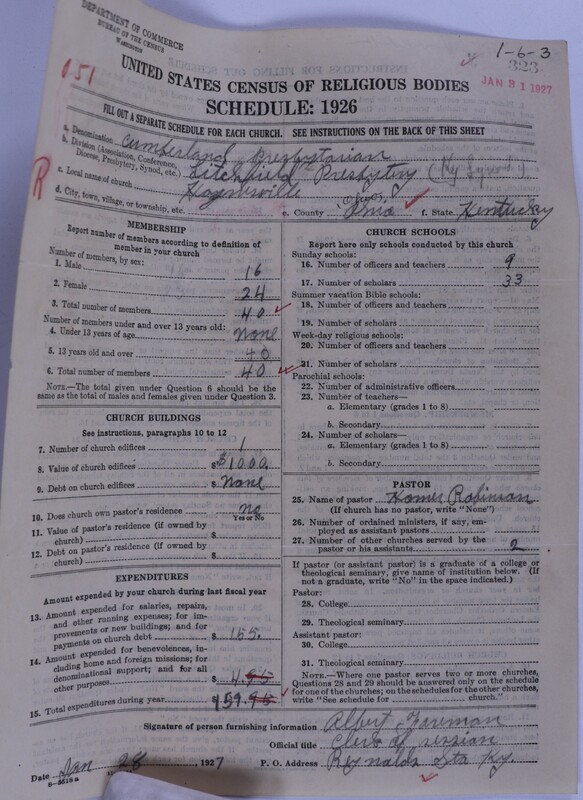 DEPARTMENT OF COMMERCE
BUREAU OF THE CENSUS
WASHINGTON
1-6-3
323
JAN 31 1927
051
UNITED STATES CENSUS OF RELIGIOUS BODIES
SCHEDULE: 1926
FILL OUT A SEPARATE SCHEDULE FOR EACH CHURCH. SEE INSTRUCTIONS ON THE BACK OF THIS SHEET
a. Denomination Cumberland Presbytarian
b. Division (Association, Conference, Diocese, Presbytery, Synod, etc.) Litchfield Presbytery (Ky Synod)
R
c. Local name of church Haynesville
d. City, town, village, or township, etc.
e. County Ohio f. State Kentucky
MEMBERSHIP
Report number of members according to definition of member in your church
Number of members, by sex:
1. Male 16
2. Female 24
3. Total number of members 40
Number of members under and over 13 years old:
4. Under 13 years of age none
5. 13 years old and over 40
6. Total number of members 40
NOTE.—The total given under Question 6 should be the same as the total of males and females given under Question 3.
CHURCH BUILDINGS
See instructions, paragraphs 10 to 12
7. Number of church edifices 1
8. Value of church edifices $1000.
9. Debt on church edifices $ none
10. Does church own pastor's residence no
Yes or No
11. Value of pastor's residence (if owned by church) $
12. Debt on pastor's residence (if owned by church) $
EXPENDITURES
Amount expended by your church during last fiscal year
13. Amount expended for salaries, repairs, and other running expenses; for improvements or new buildings; and for payments on church debt $ 155.
14. Amount expended for benevolences, including home and foreign missions; for denominational support; and for all other purposes $ 4.95
15. Total expenditures during year $159.95
CHURCH SCHOOLS
Report here only schools conducted by this church
Sunday schools:
16. Number of officers and teachers 9
17. Number of scholars 33
Summer vacation Bible schools:
18. Number of officers and teachers
19. Number of scholars
Week-day religious schools:
20. Number of officers and teachers
21. Number of scholars
Parochial schools:
22. Number of administrative officers
23. Number of teachers—
a. Elementary (grades 1 to 8)
b. Secondary
24. Number of scholars—
a. Elementary (grades 1 to 8)
b. Secondary
PASTOR
25. Name of pastor Homer Robinson
(If church has no pastor, write "None")
26. Number of ordained ministers, if any, employed as assistant pastors
27. Number of other churches served by the pastor or his assistants 2
If pastor (or assistant pastor) is a graduate of a college or theological seminary, give name of institution below. (If not a graduate, write "No" in the space indicated.)
Pastor:
28. College
29. Theological seminary
Assistant pastor:
30. College
31. Theological seminary
NOTE.—Where one pastor serves two or more churches, Questions 28 and 29 should be answered only on the schedule for one of the churches; on the schedules for the other churches, write "See schedule for church."
Signature of person furnishing information Albert
Official title Clerk of session
Date Jan 28, 1927 P. O. Address Reynolds Sta Ky.
8-3518 a